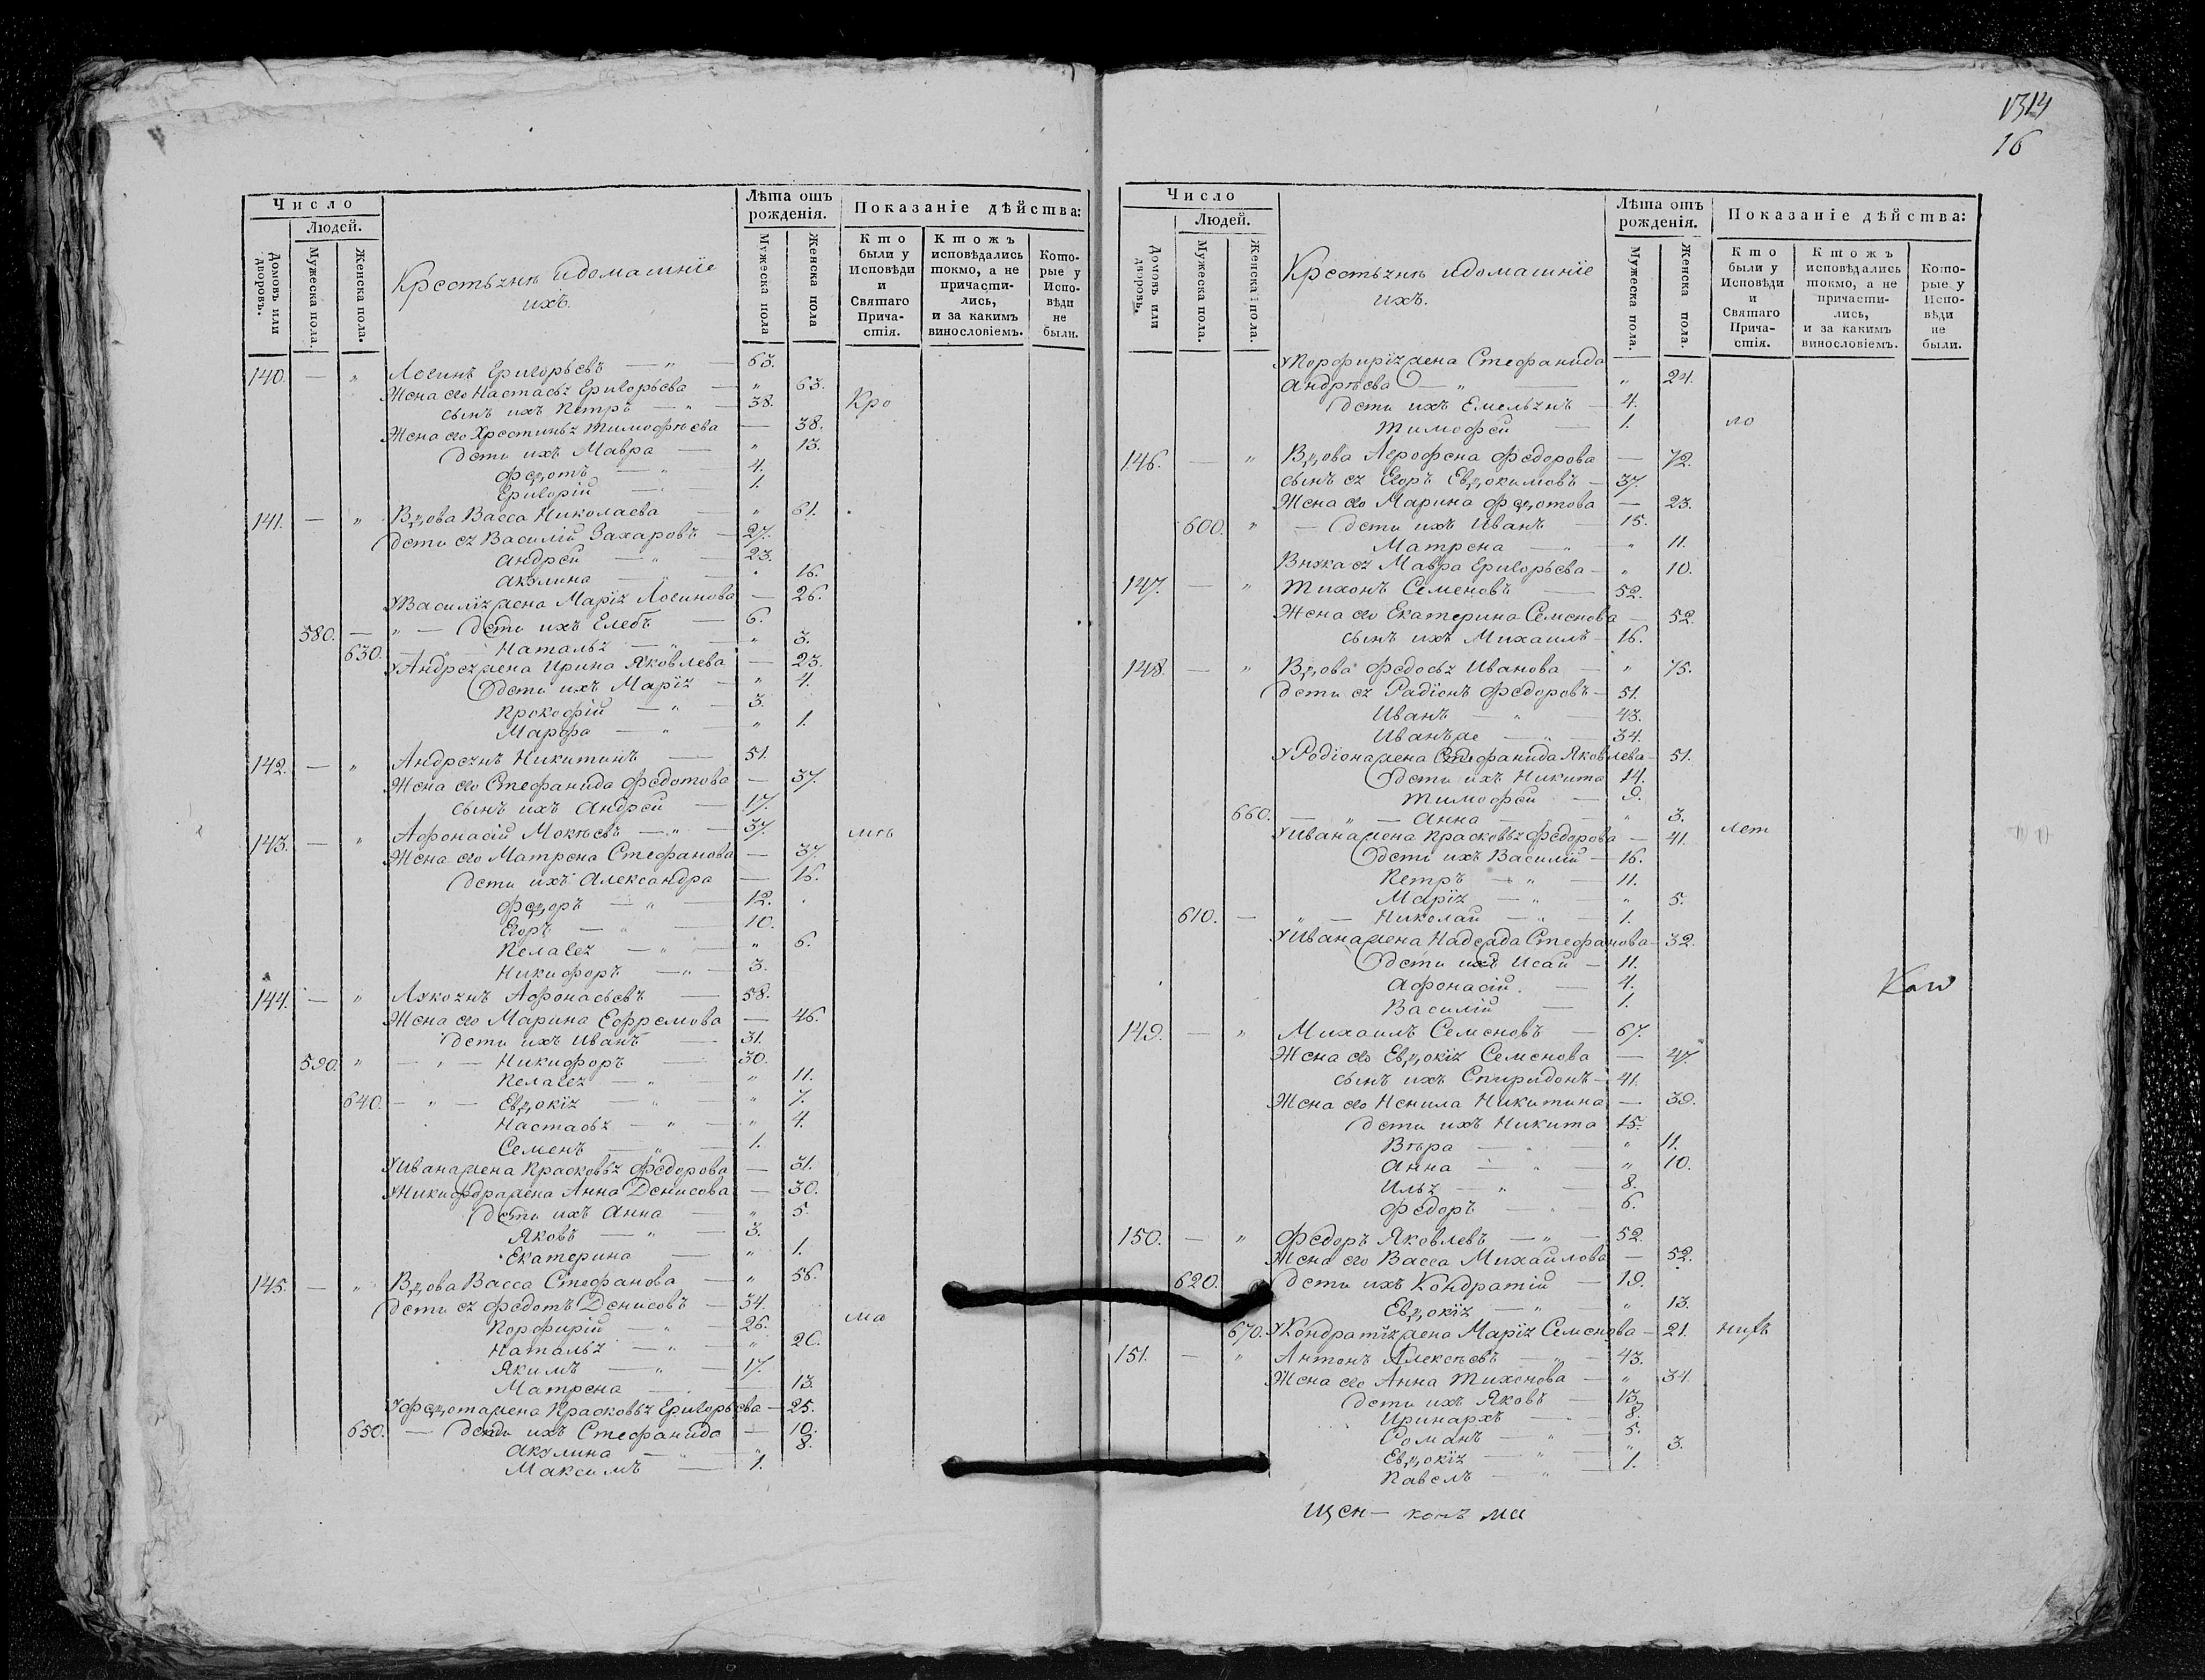 1314
16
Число
Людей.
Домовъ или дворовъ.
Мужеска пола.
Женска пола.
Крестьяня идомашнїе
ихъ.
Лѣта отъ рожденія.
Мужеска пола
Женска пола
Показаніе дѣйства:
Кто были у Исповѣди и Святаго Причастія.
Ктожъ исповѣдались токмо, а не причастились, и за какимъ винословіемъ.
Которые у Исповѣди не были.
140. — „ Логинъ Григорьевъ — „ — 63.
Жена его Настасья Григорьева — „ 63.
сынъ ихъ Петръ — „ — 38. Кре
Жена его Хрестинья Тимофѣева — 38.
дети ихъ Мавра — „ 13.
Федотъ — „ 4.
Григорій — 1.
141. — „ Вдова Васса Николаева — „ 61.
дети ея Василій Захаровъ — 27.
Андрей — „ — 23.
Акулина — 16.
УВасилія жена Марїя Логинова — 26.
580. — „ — дети ихъ Глебъ — 6.
630. — Наталья — „ 3.
УАндрея жена Ирина Яковлева — 23.
дети ихъ Марїя — „ 4.
Прокофій — „ — 3.
Марфа — „ — „ 1.
142. — „ Андреянъ Никитинъ — 51.
Жена его Стефанида Федотова — 37.
сынъ ихъ Андрей — 17.
143. — „ Афонасій Мокѣевъ — „ — 37.
Жена его Матрена Стефанова — 37.
дети ихъ Александра — 16.
Федоръ — „ — 12.
Егоръ — „ — 10.
Пелагея — „ — „ 6.
Никифоръ — „ — 3.
144. — „ Лукоянъ Афонасьевъ — 58.
Жена его Марина Ефремова — 46.
дети ихъ Иванъ — 31.
590. „ — „ — Никифоръ — 30.
Пелагея — „ — „ 11.
640. — „ — Евдокія — „ — „ 7.
Настасья — „ — „ 4.
Семенъ — „ — 1.
УИвана жена Прасковья Федорова — 31.
УНикифора жена Анна Денисова — 30.
дети ихъ Анна — „ 5.
Яковъ — „ — 3.
Екатерина — „ 1.
145. — „ Вдова Васса Стефанова — „ 56.
дети ея Федотъ Денисовъ — 34.
Порфирій — „ — 26. ма
Наталья — „ — „ 20.
Якимъ — „ — 17.
Матрена — 13.
УФедота жена Прасковья Григорьева — 25.
650. — дети ихъ Стефанида — 10.
Акулина — „ — „ 8.
Максимъ — 1.
Число
Людей.
Домовъ или дворовъ.
Мужеска пола.
Женска пола.
Крестьяня идомашнїе
ихъ.
Лѣта отъ рожденія.
Мужеска пола.
Женска пола.
Показаніе дѣйства:
Кто были у Исповѣди и Святаго Причастія.
Ктожъ исповѣдались токмо, а не причастились, и за какимъ винословіемъ.
Которые у Исповѣди не были.
УПорфирїя жена Стефанида
Андрѣева — „ — „ 24.
дети ихъ Емельянъ — 4.
Тимофей — 1. ло
146. — „ Вдова Аерофена Федорова — 72.
сынъ ея Егоръ Евдокимовъ — 37.
Жена его Марина Федотова — 23.
600. „ — дети ихъ Иванъ 15.
Матрена — „ — „ 11.
Внука ея Мавра Григорьева — „ 10.
147. — „ Тихонъ Семеновъ — 52.
Жена его Екатерина Семенова — 52.
сынъ ихъ Михаилъ — 16.
148. — „ Вдова Федосья Иванова — „ 75.
дети ея Радїонъ Федоровъ — 51.
Иванъ — „ — 43.
Иванъ же — „ — 34.
УРодїона жена Стефанида Яковлева — 51.
дети ихъ Никита 14.
Тимофей — 9.
660. — „ — Анна — „ 3.
УИвана жена Прасковья Федорова — 41.
дети ихъ Василій — 16.
Петръ — „ — 11.
Марїя — „ — „ 5.
610. — „ — Николай — „ — 1.
УИвана жена Надежда Стефанова — 32.
дети ихъ Исай — 11.
Афонасій — 4.
Василій — 1.
149. — „ Михаилъ Семеновъ — 67.
Жена его Евдокія Семенова — 47.
сынъ ихъ Спиридонъ — 41.
Жена его Ненила Никитина — 39.
дети ихъ Никита 15.
Вѣра — „ 11.
Анна — „ — „ 10.
Илья — „ — 8.
Федоръ — „ — 6.
150. — „ Федоръ Яковлевъ — „ — 52.
Жена его Васса Михайлова — 52.
620. дети ихъ Кондратій — 19.
Евдокїя — „ „ 13.
670. УКондратїя жена Марїя Семенова — 21.
151. — „ Антонъ Алексѣевъ — „ — 43.
Жена его Анна Тихонова — „ 34.
дети ихъ Яковъ — 13.
Иринархъ — „ — 8.
Романъ — „ — 5.
Евдокїя — „ — „ 3.
Павелъ — „ — 1.